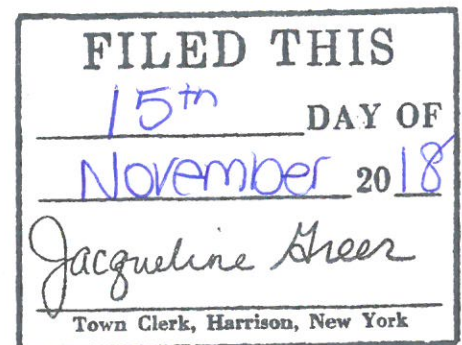 FILED THIS
15th DAY OF
November 2018
Jacqueline Greer
Town Clerk, Harrison, New York